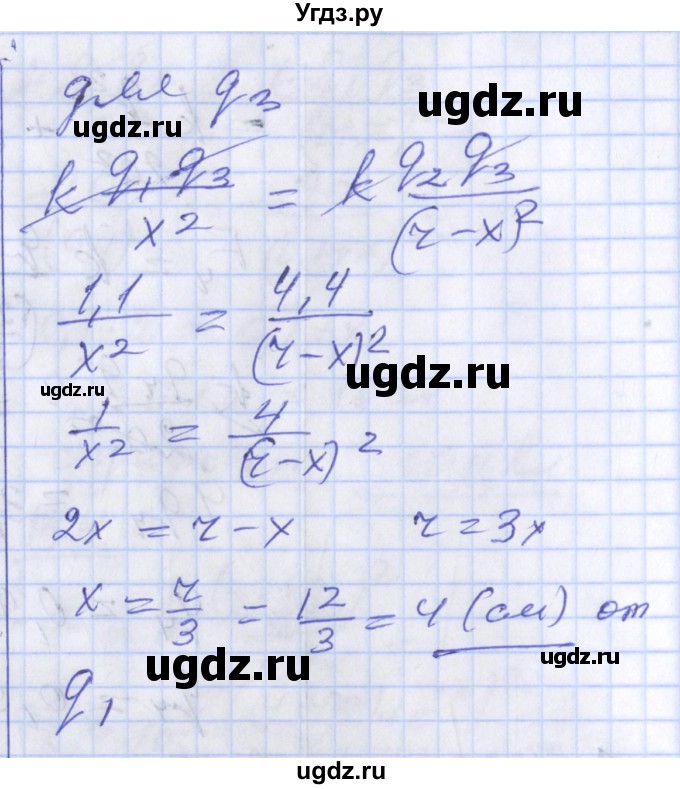 Угдз.ру
для q₃
ugdz.ru
ugdz.ru
k q₁ q₃ / x² = k q₂ q₃ / (r – x)²
1,1 / x² = 4,4 / (r – x)²
ugdz.ru
ugdz.ru
1 / x² = 4 / (r – x)²
2x = r – x r = 3x
x = r/3 = 12/3 = 4 (см) от
ugdz.ru
ugdz.ru
q₁
ugdz.ru